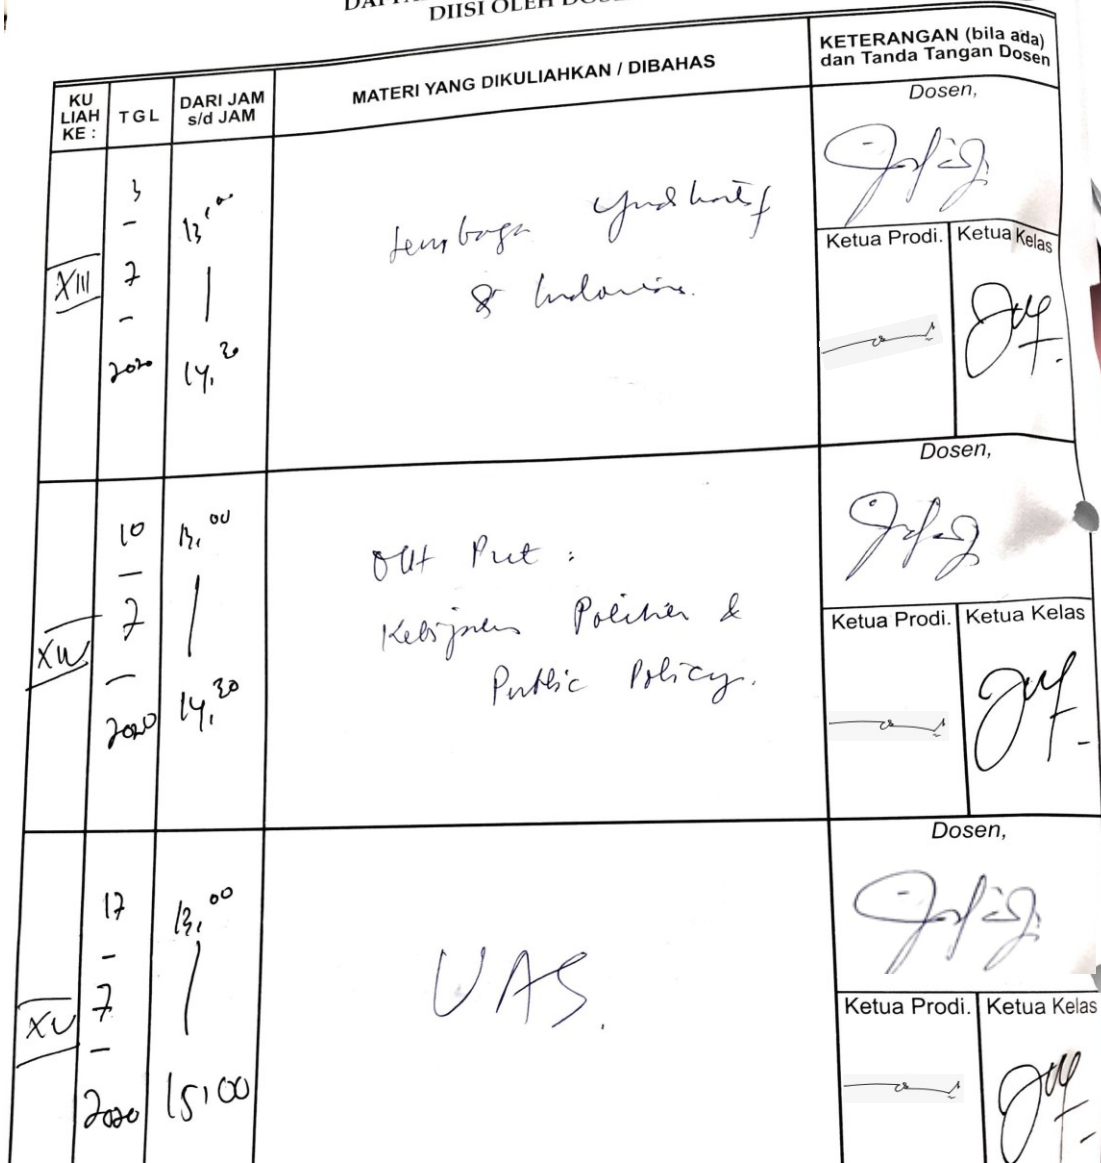 DIISI OLEH
KU
LIAH
KE :
TGL
DARI JAM
s/d JAM
MATERI YANG DIKULIAHKAN / DIBAHAS
KETERANGAN (bila ada)
dan Tanda Tangan Dosen
XIII
3
-
7
-
2020
13,00
|
14,30
Lembaga Yudikatif
& Indonesia.
Dosen,
Ketua Prodi.
Ketua Kelas
XIV
10
-
7
-
2020
13,00
|
14,30
Out Put :
Kebijakan Politik &
Public Policy.
Dosen,
Ketua Prodi.
Ketua Kelas
XV
17
-
7
-
2020
13,00
|
15,00
UAS.
Dosen,
Ketua Prodi.
Ketua Kelas